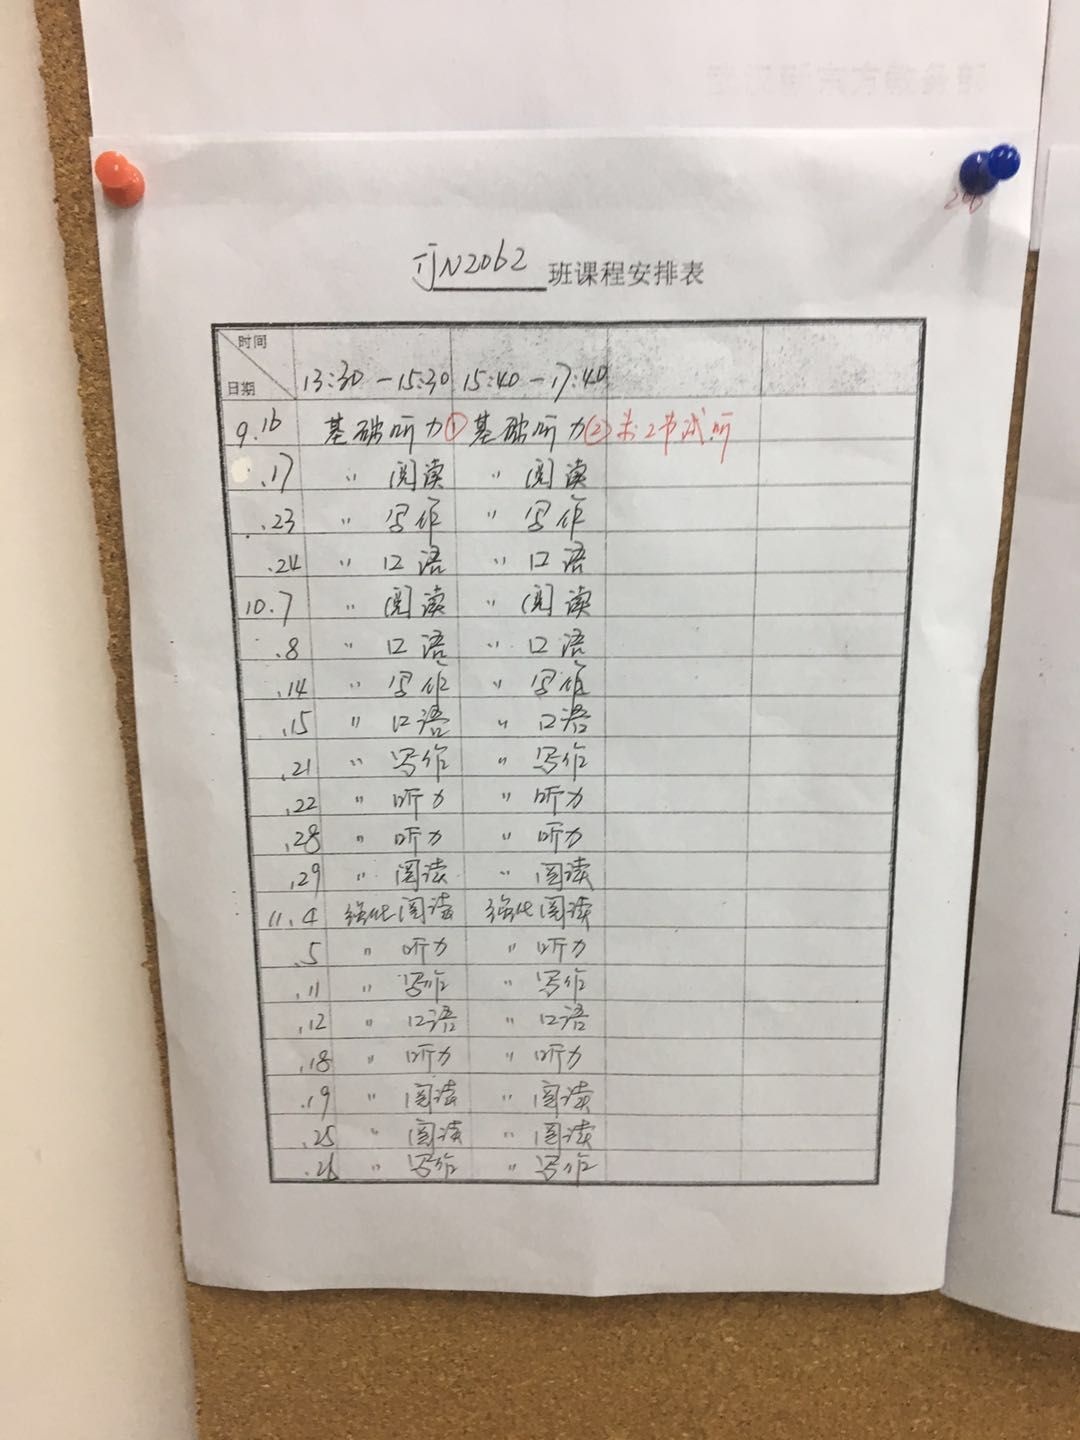 206
JJN2062 班课程安排表
时间
日期 13:30 - 15:30 15:40 - 17:40
9.16 基础听力① 基础听力② 第2节试听
.17 〃 阅读 〃 阅读
.23 〃 写作 〃 写作
.24 〃 口语 〃 口语
10.7 〃 阅读 〃 阅读
.8 〃 口语 〃 口语
.14 〃 写作 〃 写作
.15 〃 口语 〃 口语
.21 〃 写作 〃 写作
.22 〃 听力 〃 听力
.28 〃 听力 〃 听力
.29 〃 阅读 〃 阅读
11.4 强化阅读 强化阅读
.5 〃 听力 〃 听力
.11 〃 写作 〃 写作
.12 〃 口语 〃 口语
.18 〃 听力 〃 听力
.19 〃 阅读 〃 阅读
.25 〃 阅读 〃 阅读
.26 〃 写作 〃 写作